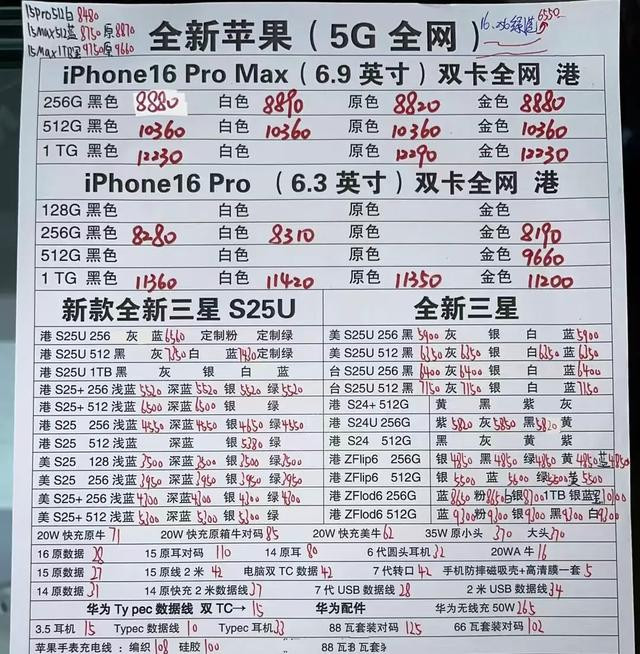 15Pro512白8480
15Max512蓝8750原8870
15Max1TB黑9750原9660
16.256绿送6550
全新苹果（5G 全网）
iPhone16 Pro Max（6.9 英寸）双卡全网 港
256G 黑色 8880 白色 8890 原色 8820 金色 8880
512G 黑色 10360 白色 10360 原色 10360 金色 10360
1 TG 黑色 12230 白色 原色 12290 金色 12230
iPhone16 Pro （6.3 英寸）双卡全网 港
128G 黑色 白色 原色 金色
256G 黑色 8280 白色 8310 原色 金色 8190
512G 黑色 白色 原色 金色 9660
1 TG 黑色 11360 白色 11420 原色 11350 金色 11200
新款全新三星 S25U
港 S25U 256 灰 蓝6560 定制粉 定制绿
港 S25U 512 黑 灰7350白 蓝7430定制绿
港 S25U 1TB 黑 灰 银 白 蓝
港 S25+ 256 浅蓝5520 深蓝5520 银5520 绿5520
港 S25+ 512 浅蓝6500 深蓝6500 银 绿
港 S25 256 浅蓝4550 深蓝4550 银4650 绿4550
港 S25 512 浅蓝 深蓝 银5380 绿
美 S25 128 浅蓝3500 深蓝3500 银3500 绿3500
美 S25 256 浅蓝3950 深蓝3950 银3950 绿3950
美 S25+ 256 浅蓝4300 深蓝4300 银4300 绿4300
美 S25+ 512 浅蓝5300 深蓝5300 银5300 绿
全新三星
美 S25U 256 黑5900灰 银 白 蓝5900
美 S25U 512 黑6350灰6350 银 白6350蓝6350
台 S25U 256 黑6400灰6400 银 白 蓝6400
台 S25U 512 黑7150灰7150 银 白 蓝7150
港 S24+ 512G 黄 黑 紫 灰
港 S24U 256G 紫5820灰5850黑5820黄
港 S24 512G 黑 灰 黄 紫
港 ZFlip6 256G 银4850黑4850绿4850黄4850蓝4850
港 ZFlip6 512G 银5500 蓝5600 绿5500黄5500
港 ZFlod6 256G 蓝8650粉8650白银8700 1TB 银蓝
港 ZFlod6 512G 蓝9300粉9300银9300黑9300白9300
20W 快充原牛71 20W 快充原箱牛对码85 20W 快充美牛62 35W 原小头370 大头370
16 原数据28 15 原耳对码110 14 原耳80 6 代圆头耳机32 20WA 牛16
15 原数据27 15 原线2 米42 电脑双 TC 数据42 7 代转口42 手机防摔磁吸壳+高清膜一套5
14 原数据31 14 原快充 2 米数据线37 7 代 USB 数据线28 2 米 USB 数据线34
华为 Ty pec 数据线 双 TC→15 华为配件 华为无线充 50W265
3.5 耳机15 Typec 数据线10 Typec 耳机33 88 瓦套装对码125 66 瓦套装对码102
苹果手表充电线：编织108 硅胶100 88 瓦